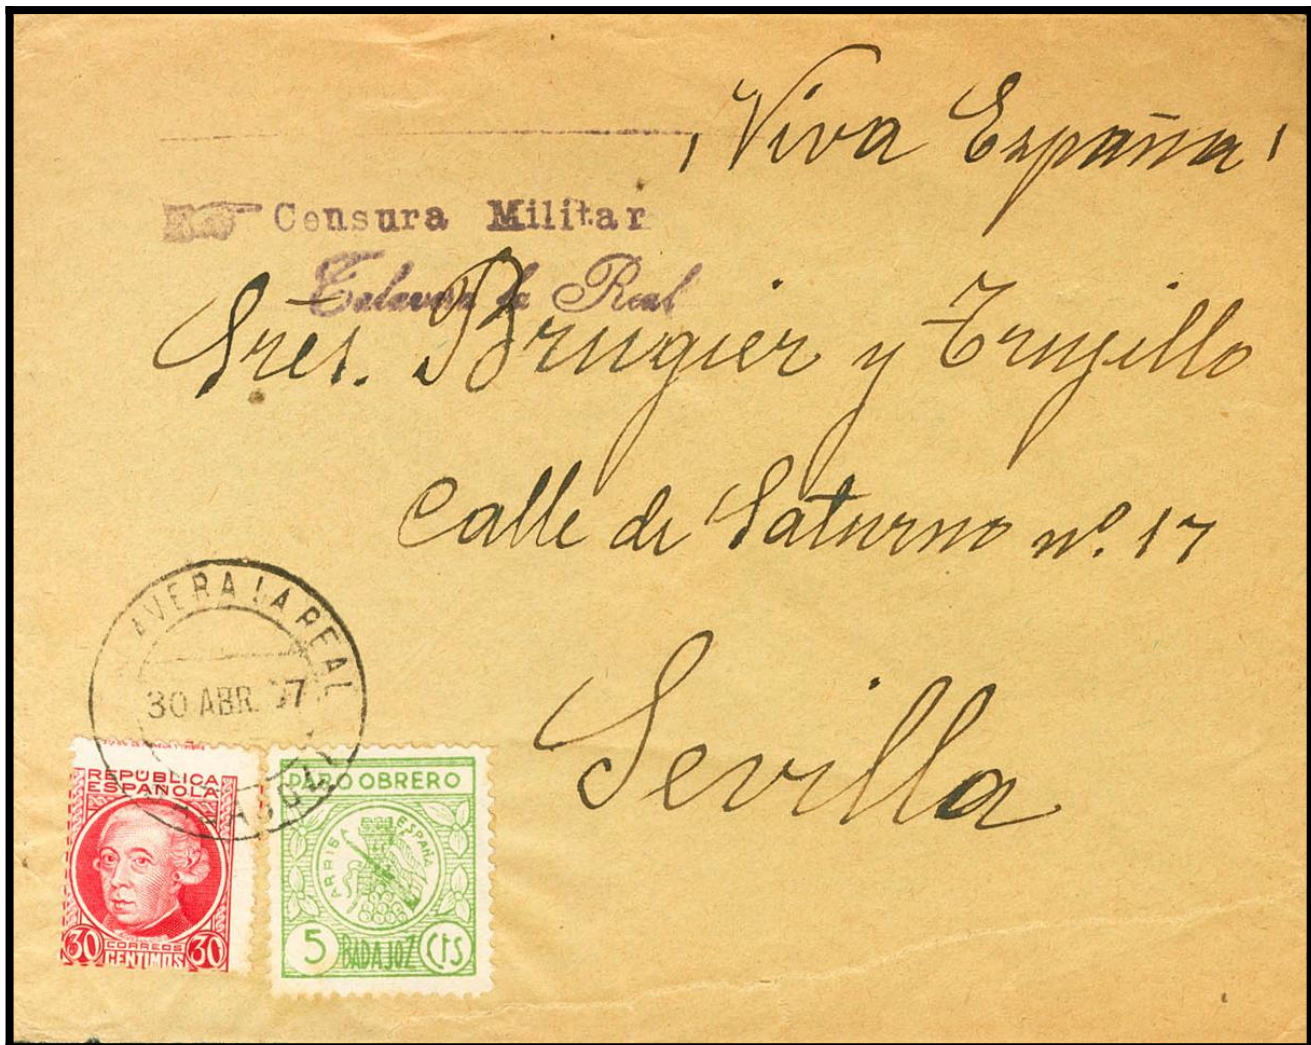 ¡Viva España!
Censura Militar
Talavera la Real
Sres. Brugier y Trujillo
Calle de Saturno nº. 17
Sevilla
AVERA LA REAL
30 ABR. 37
REPÚBLICA
ESPAÑOLA
30 CORREOS 30
CENTIMOS
PARO OBRERO
ARRIBA ESPAÑA
5 BADAJOZ Cts